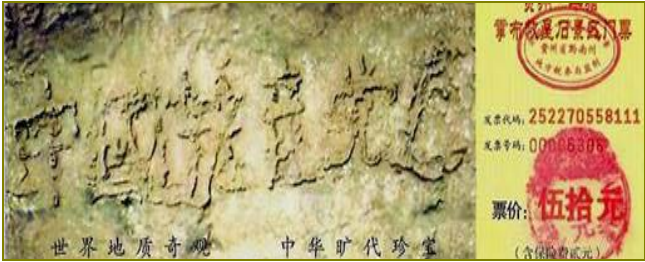 中国共产党亡
世界地质奇观 中华旷代珍宝
掌布救星石景区门票
贵州省黔南州
地方税务局监制
发票代码:252270558111
发票号码:00006306
票价:伍拾元
(含保险费贰元)